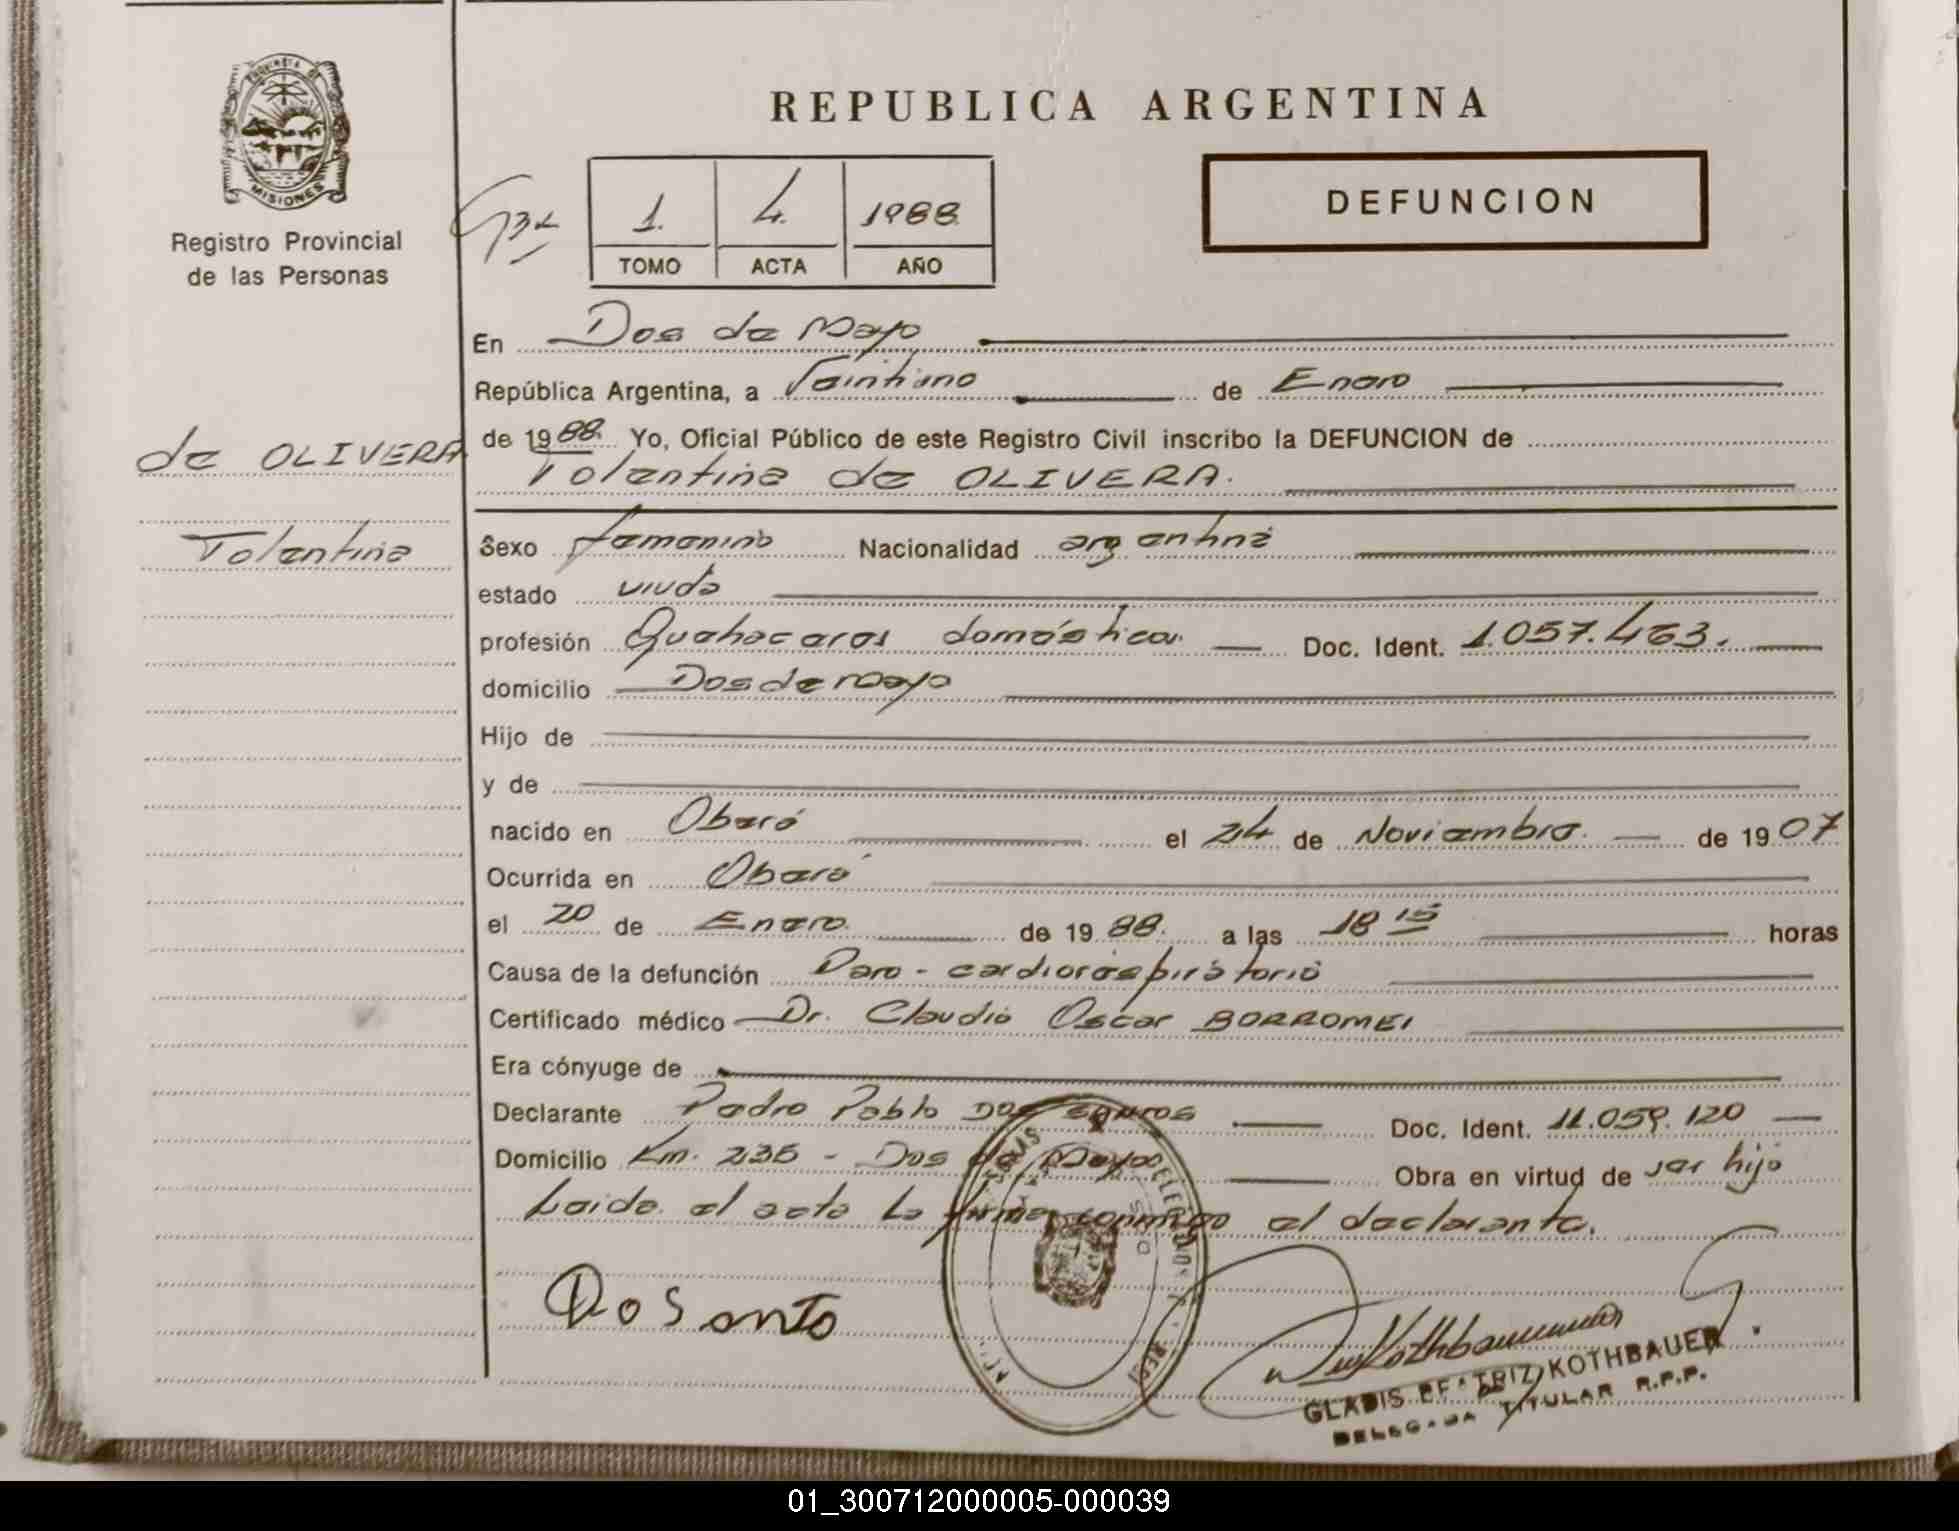 PROVINCIA DE
MISIONES
Registro Provincial
de las Personas
REPUBLICA ARGENTINA
DEFUNCION
1. 4. 1988
TOMO ACTA AÑO
En Dos de Mayo
República Argentina, a Veintiuno de Enero
de OLIVERA
Tolentina
de 1988. Yo, Oficial Público de este Registro Civil inscribo la DEFUNCION de
Tolentina de OLIVERA.
Sexo femenino Nacionalidad argentina
estado viuda
profesión Quehaceres domésticos. Doc. Ident. 1.057.463.
domicilio Dos de mayo
Hijo de
y de
nacido en Oberá el 24 de Noviembre. de 1907
Ocurrida en Oberá
el 20 de Enero. de 1988. a las 18 15 horas
Causa de la defunción Paro - cardiorespiratorio
Certificado médico Dr. Claudio Oscar BORROMEI
Era cónyuge de
Declarante Pedro Pablo DOS SANTOS Doc. Ident. 11.059.120
Domicilio Km. 235 - Dos de Mayo Obra en virtud de ser hijo
Leida el acta la firma conmigo el declarante.
Do Santo
Kothbauer
GLADIS BEATRIZ KOTHBAUER
DELEGADA TITULAR R.P.P.
01_300712000005-000039